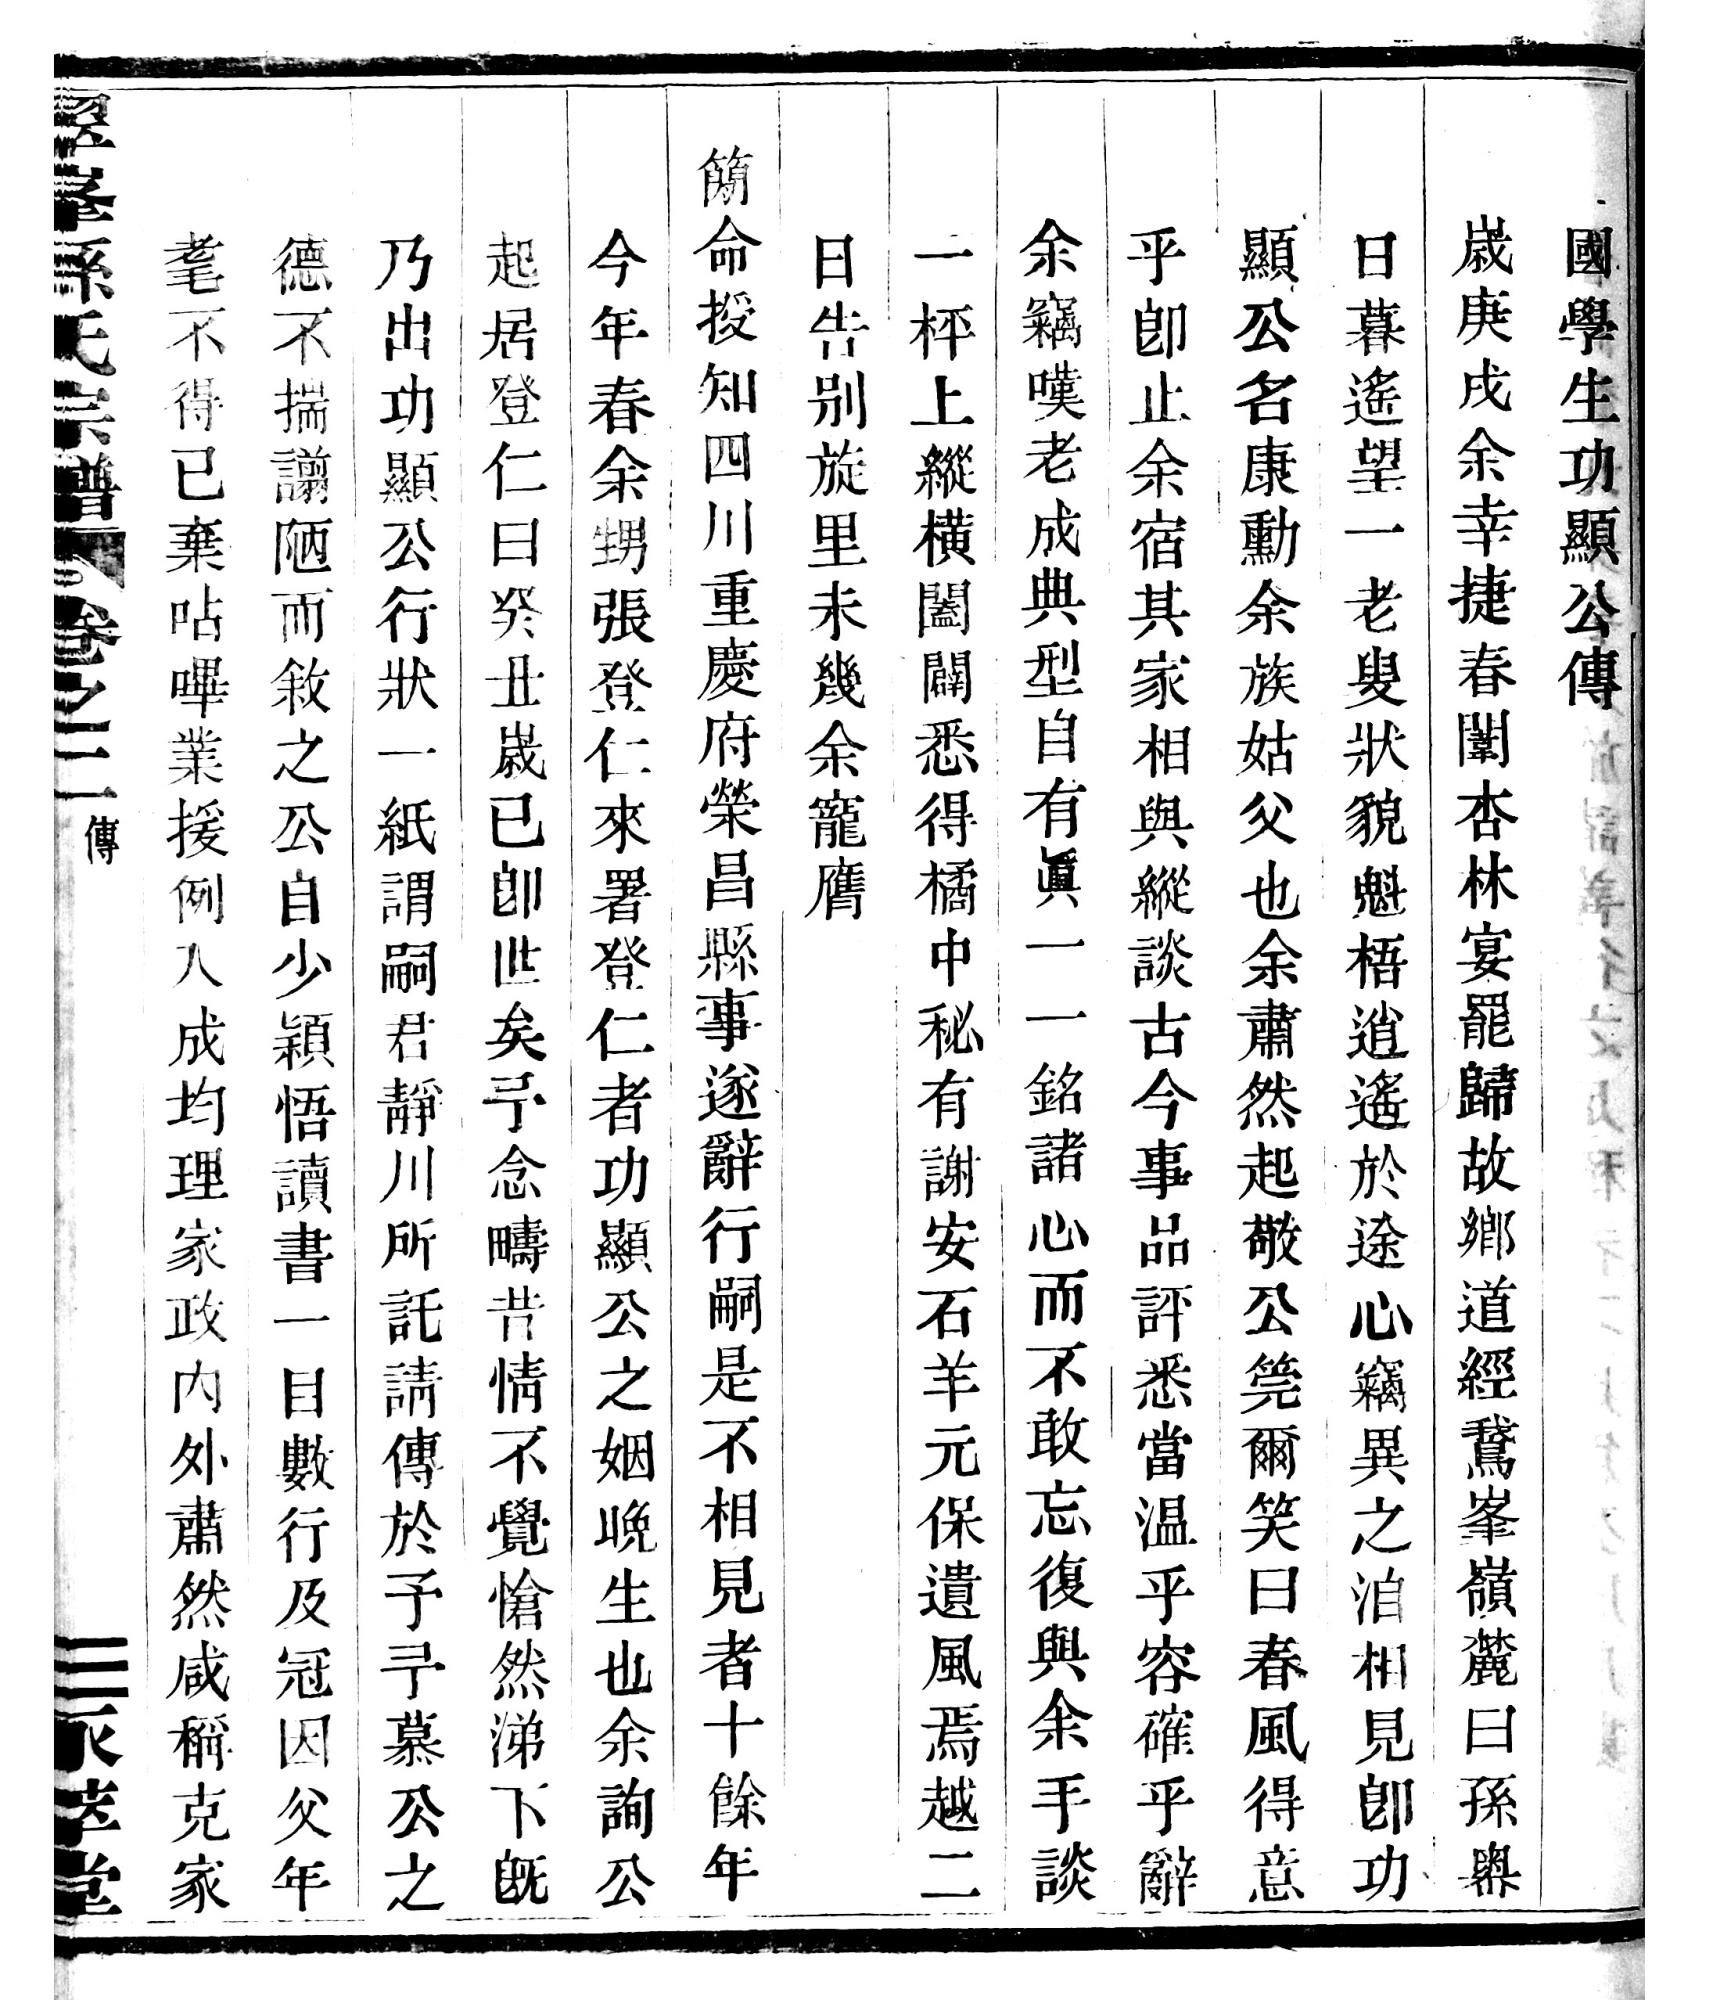 國學生功顯公傳
歲庚戌余幸捷春闈杏林宴罷歸故鄉道經鵞峯嶺麓曰孫㠘
日暮遙望一老叟狀貌魁梧逍遙於途心竊異之洎相見卽功
顯公名康勳余族姑父也余肅然起敬公筦爾笑曰春風得意
乎卽止余宿其家相與縱談古今事品評悉當温乎容確乎辭
余竊嘆老成典型自有眞一一銘諸心而不敢忘復與余手談
一枰上縱橫闔闢悉得橘中秘有謝安石羊元保遺風焉越二
日告别旋里未幾余寵膺
簡命授知四川重慶府榮昌縣事遂辭行嗣是不相見者十餘年
今年春余甥張登仁來署登仁者功顯公之姻晚生也余詢公
起居登仁曰癸丑歲已卽世矣予念疇昔情不覺愴然涕下旣
乃出功顯公行狀一紙謂嗣君靜川所託請傳於予予慕公之
德不揣謭陋而敘之公自少穎悟讀書一目數行及冠因父年
耄不得已棄呫嗶業援例入成均理家政內外肅然咸稱克家
峯孫氏宗譜 卷之二 傳 三 永萃堂